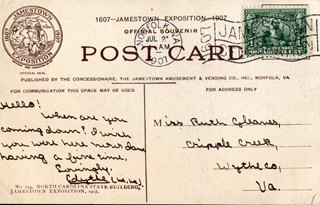 1607–JAMESTOWN EXPOSITION–1907
OFFICIAL SOUVENIR
POST-CARD
JAMESTOWN
EXPOSITION
1607
1907
OFFICIAL SEAL
NORFOLK, VA.
JUL
AM
1907
PUBLISHED BY THE CONCESSIONAIRE, THE JAMESTOWN AMUSEMENT & VENDING CO., INC., NORFOLK, VA.
FOR COMMUNICATION THIS SPACE MAY BE USED
FOR ADDRESS ONLY
Hello!
When are you
coming down? I wish
you were here now. I am
having a fine time,
Lovingly,
Miss Ruth
Cripple Creek,
Wythe Co,
Va.
No. 154. NORTH CAROLINA STATE BUILDING,
JAMESTOWN EXPOSITION, 1907.